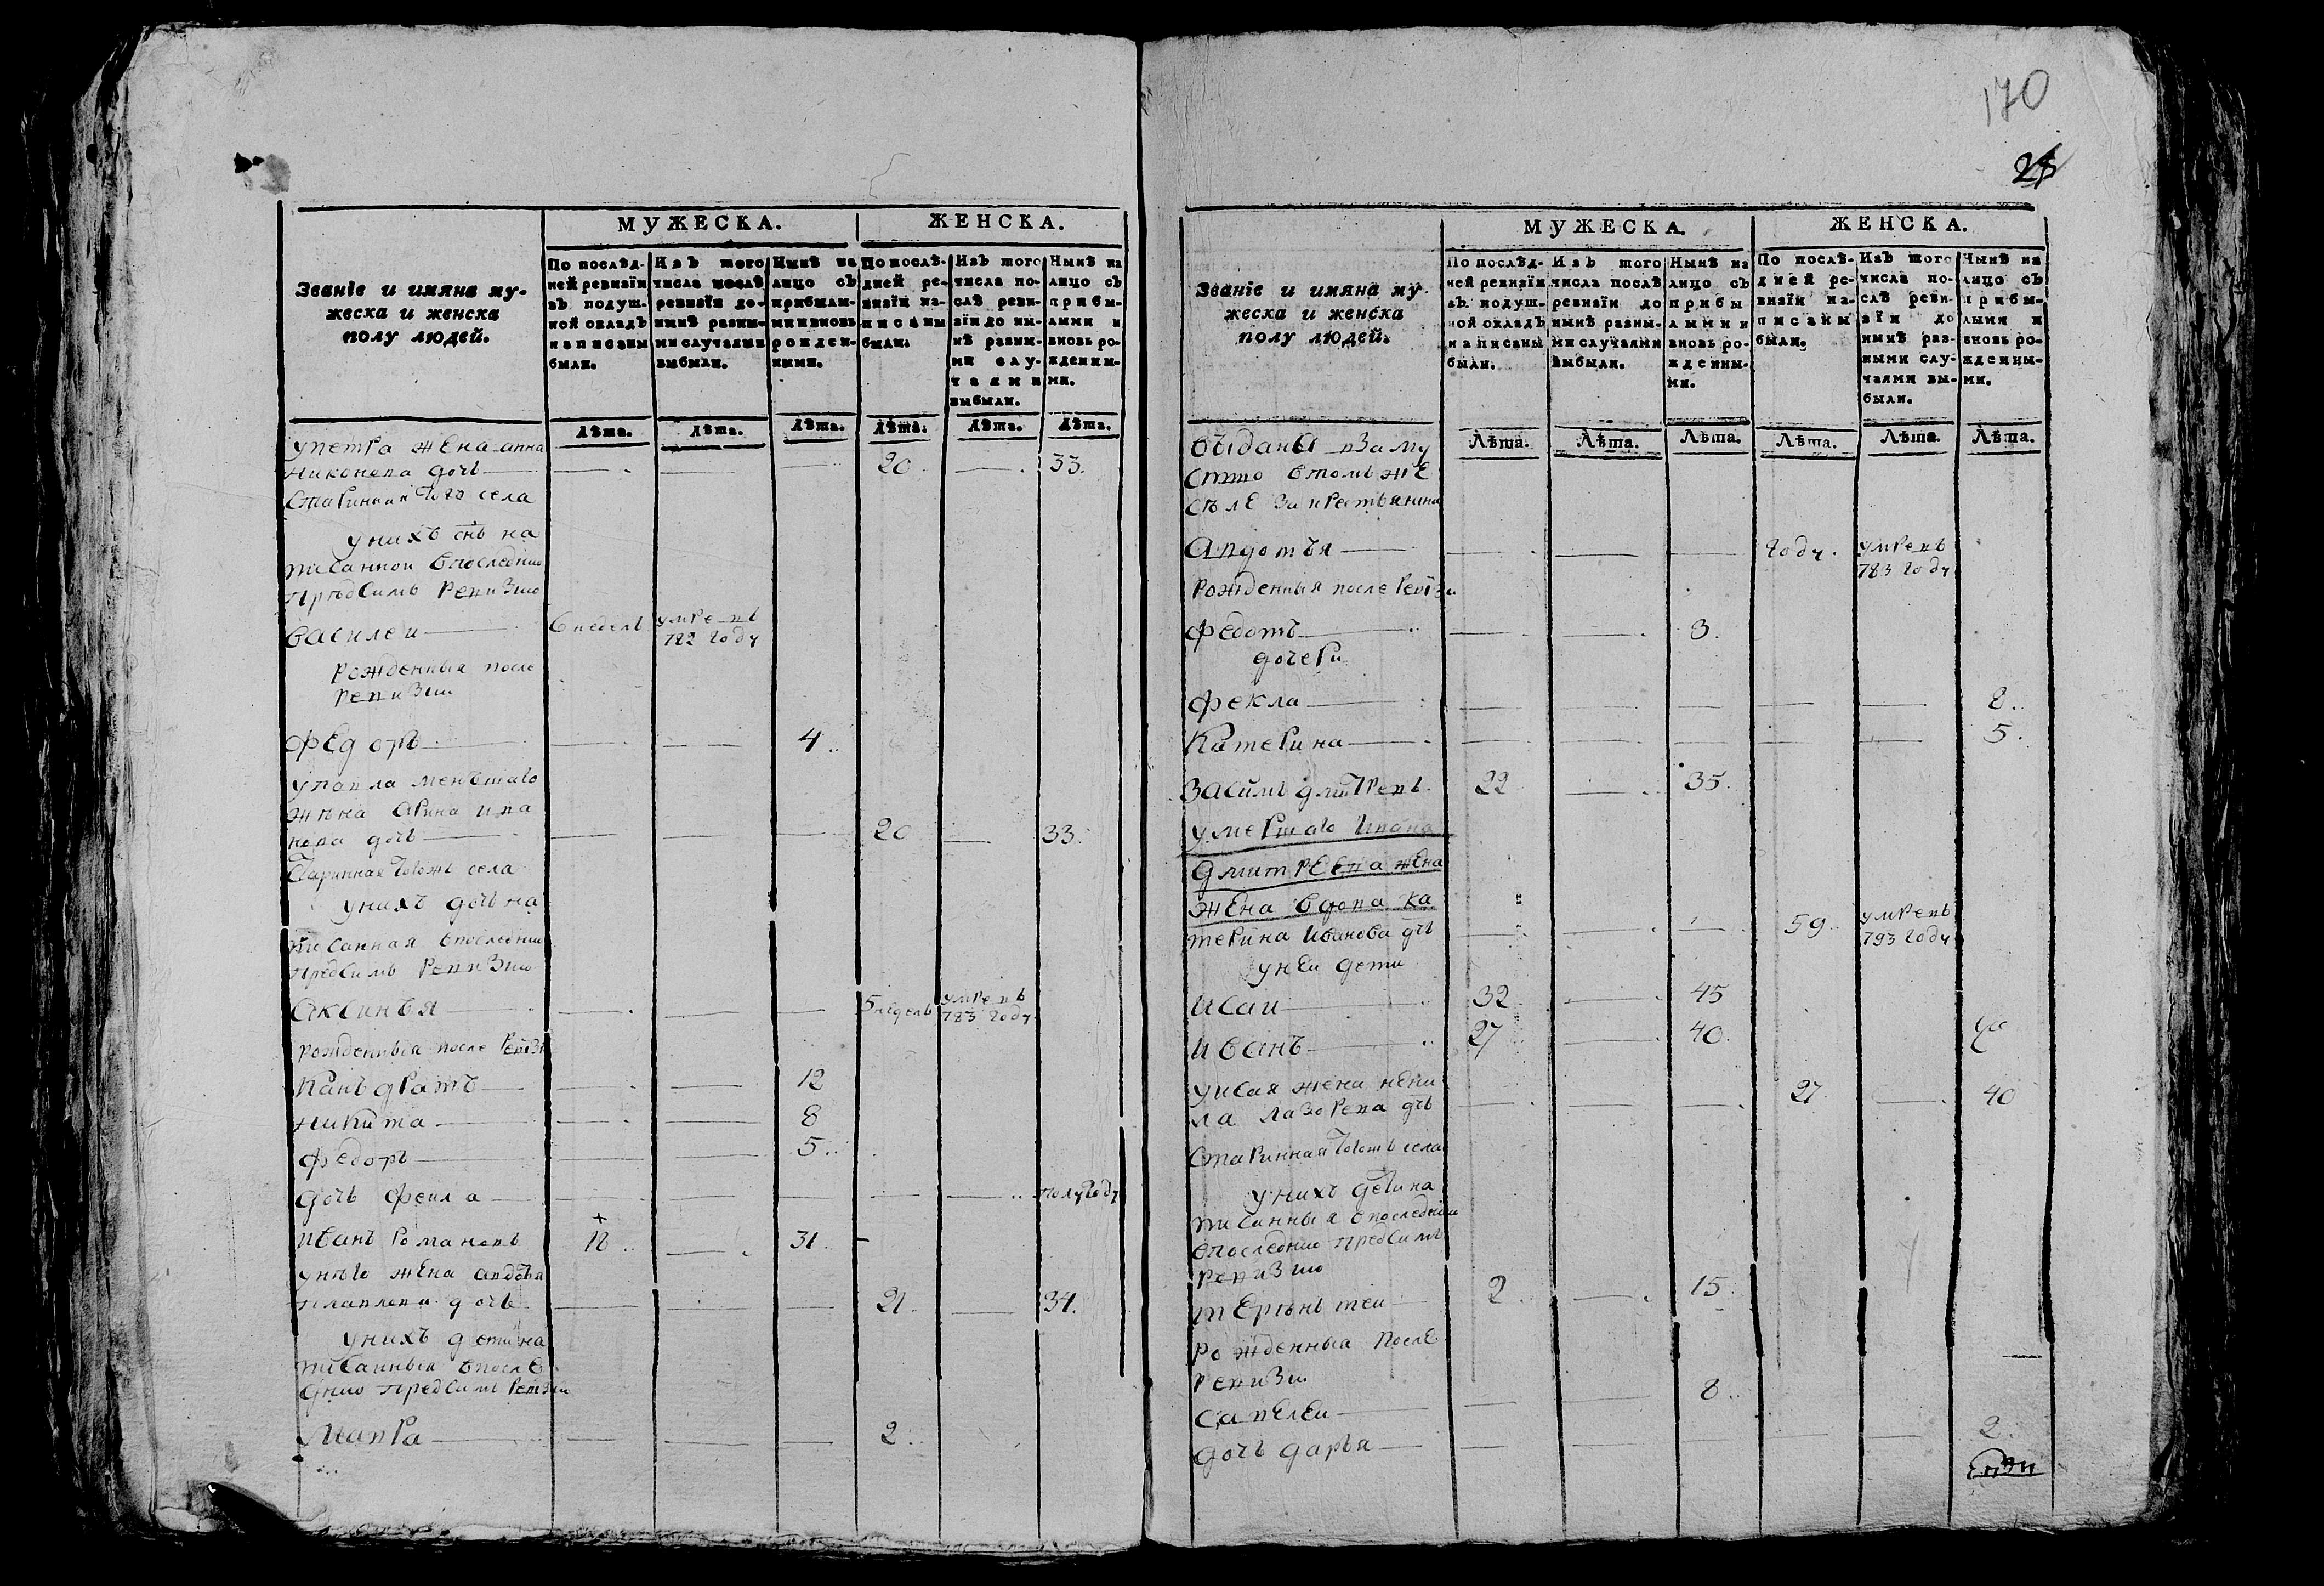 170
25
МУЖЕСКА.
ЖЕНСКА.
Званіе и имяна му-
жеска и женска
полу людей.
По послѣд-
ней ревизіи
въ подуш-
ной окладъ
написаны
были.
Изъ того
числа послѣ
ревизіи до-
нынѣ разны-
ми случаями
выбыли.
Нынѣ на
лицо съ
прибылы-
ми и вновь
рожден-
ными.
По послѣ-
дней ре-
визіи на-
писаны
были.
Изъ того
числа по-
слѣ реви-
зіи до ны-
нѣ разны-
ми слу-
чаями
выбыли.
Нынѣ на
лицо съ
прибы-
лыми и
вновь ро-
жденны-
ми.
Лѣта. Лѣта. Лѣта. Лѣта. Лѣта. Лѣта.
упетра жена анна
никонева дочь 20 33.
старинная того села
унихъ снъ на
писанной впоследнюю
предсимъ ревизию
василеи 6 недель умревъ
782 году
рожденныя после
ревизии
Федоръ 4
упавла меньшаго
жена арина ива
нова дочь 20 33.
старинная тогожъ села
унихъ дочь на
писанная впоследнюю
предсимъ ревизию
Аксинья 5 недель умревъ
783 году
рожденныя после ревизи
Канъдратъ 12
никита 8
федоръ 5
дочь Фекла полугоду
иванъ романовъ 18 31
унего жена авдотья
павлова дочь 21 34.
унихъ дети на
писанныя впосле
днюю предсимъ ревизии
Мавра 2
МУЖЕСКА.
ЖЕНСКА.
Званіе и имяна му-
жеска и женска
полу людей.
По послѣд-
ней ревизіи
въ подуш-
ной окладъ
написаны
были.
Изъ того
числа послѣ
ревизіи до
нынѣ разны-
ми случаями
выбыли.
Нынѣ на
лицо съ
прибы
лыми и
вновь ро-
жденны-
ми.
По послѣ-
дней ре-
визіи на-
писаны
были.
Изъ того
числа по-
слѣ реви-
зіи до
нынѣ раз-
ными слу-
чаями вы-
были.
Нынѣ на
лицо съ
прибы-
лыми и
вновь ро-
жденны-
ми.
Лѣта. Лѣта. Лѣта. Лѣта. Лѣта. Лѣта.
выданы взаму
ство втомъ же
селе за крестьянина
Авдотья году. умревъ
783 году
рожденныя после ревизи
федотъ 3.
дочери
фекла 8
Катерина 5
Засимъ дмитревъ 22 35.
умершаго Ивана
дмитреева жена
жена вдова ка
терина Иванова дчь 59 умревъ
793 году
унеи дети
исаи 32 45
иванъ 27 40
уисая жена нени
ла лазорева дчь 27 40
старинная тогожъ села
унихъ дети на
писанныя впоследнюю
впоследнюю предсимъ
ревизию
терентеи 2 15
рожденныя после
ревизии
савелеи 8
дочь дарья 2